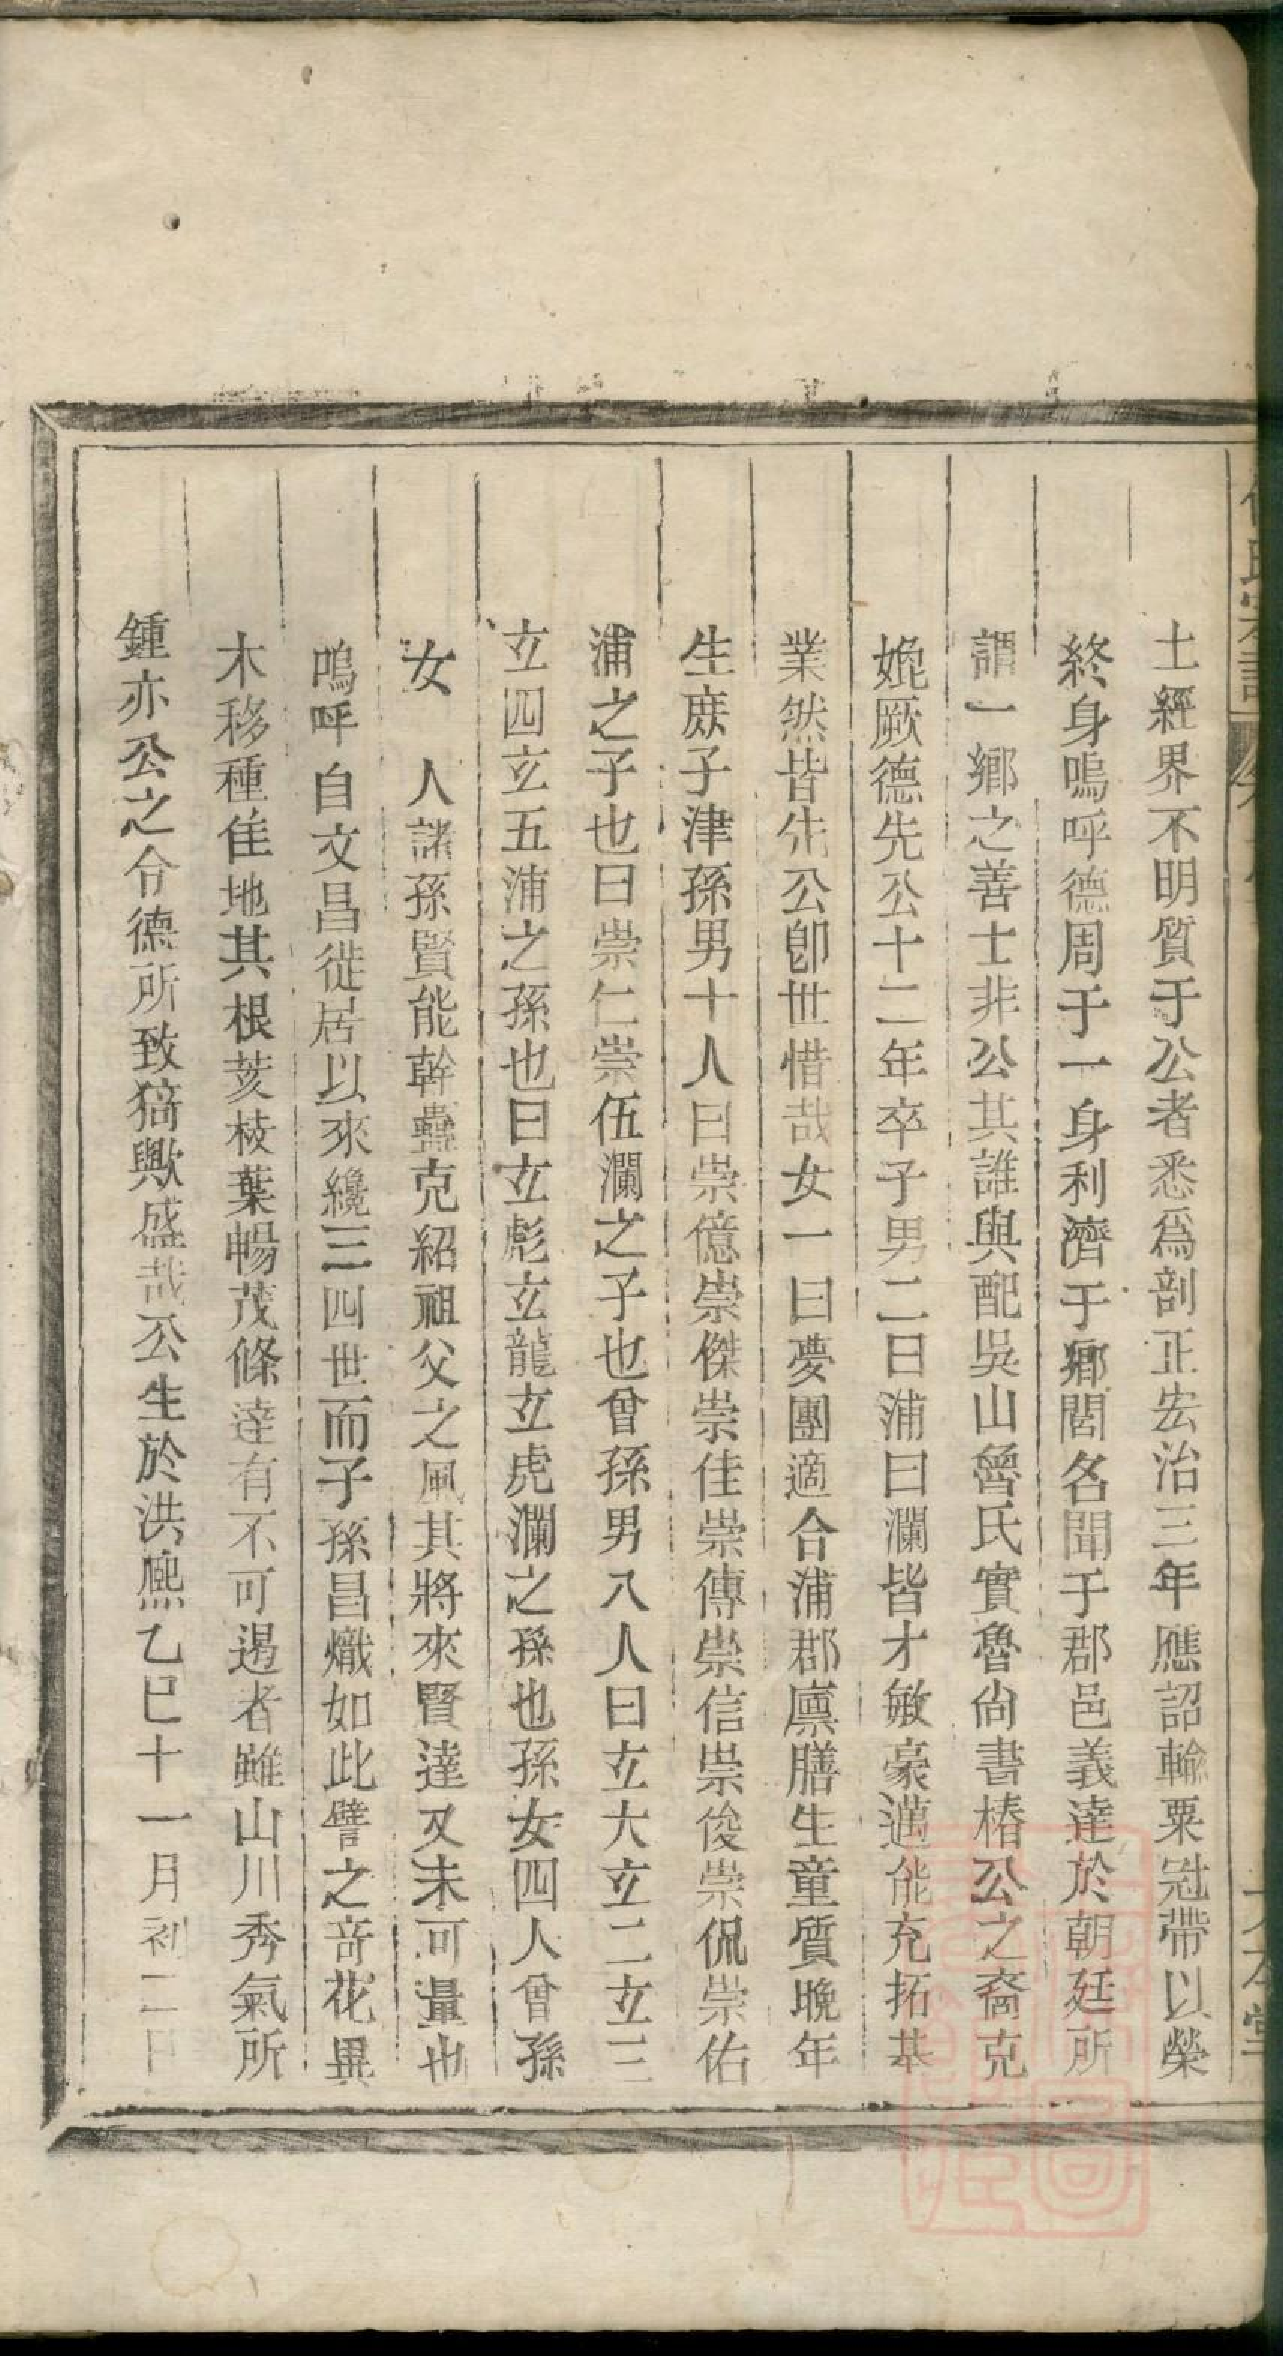 土經界不明質于公者悉爲剖正宏治三年應詔輸粟冠帶以榮
終身嗚呼德周于一身利濟于鄉閭名聞于郡邑義達於朝廷所
謂一鄉之善士非公其誰與配吳山魯氏實魯尚書椿公之裔克
媲厥德先公十二年卒子男二曰浦曰瀾皆才敏豪邁能充拓基
業然皆先公卽世惜哉女一曰夢團適合浦郡廩膳生童質晚年
生庶子津孫男十人曰崇億崇傑崇佳崇傳崇信崇俊崇侃崇佑
浦之子也曰崇仁崇伍瀾之子也曾孫男八人曰立大立二立三
立四玄五浦之孫也曰立彪玄龍立虎瀾之孫也孫女四人曾孫
女　人諸孫賢能幹蠱克紹祖父之風其將來賢達又未可量也
嗚呼自文昌徙居以來纔三四世而子孫昌熾如此譬之奇花異
木移種佳地其根荄枝葉暢茂條達有不可遏者雖山川秀氣所
鍾亦公之令德所致猗歟盛哉公生於洪熙乙巳十一月初二日